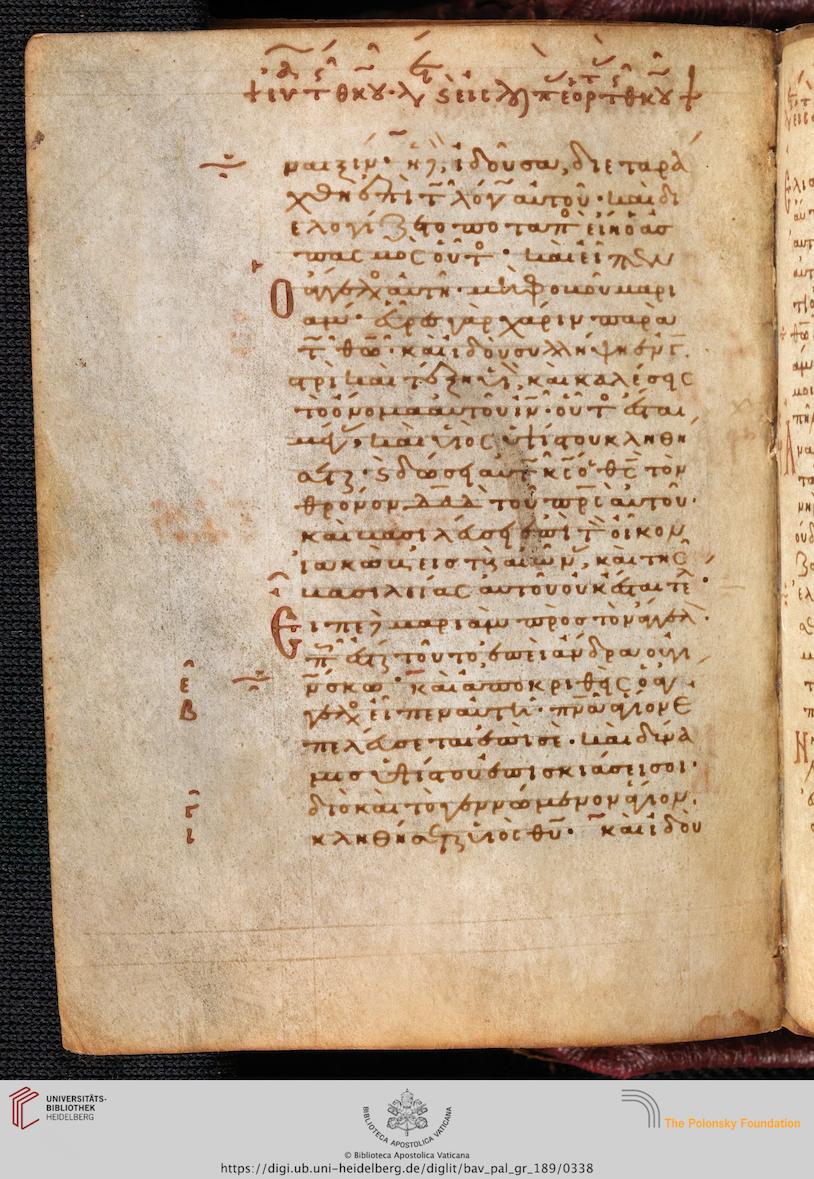 ναιξίν· ἡ, ἰδοῦσα, διεταρά
χθη ἐπὶ τ λόγ αὐτοῦ· καὶ δι
ελογίζετο ποταπ εἴη ὁ ἀσ
πασμος οὗτ· καὶ εἶπεν
Ο ἀγγελ αὐτῇ· μὴ φοβοῦ μαρι
αμ· εὗρες γὰρ χάριν παρὰ
τ θῶ· καὶ ἰδοὺ συλλήψη ἐν γ
αστρὶ καὶ τέξη υἱ, καὶ καλέσεις
τὸ ὄνομα αὐτοῦ ιν· οὗτ ἔσται
μέγ, καὶ υἱὸς ὑψίστου κληθή
σεται· ϛ δώσει αὐτ κς ὁ θς τὸν
θρόνον δαδ τοῦ πρς αὐτοῦ·
καὶ βασιλεύσει ἐπὶ τ οἶκον
ἰακὼβ, εἰς τοὺς αἰῶν, καὶ τῆς
βασιλείας αὐτοῦ οὐκ ἔσται τέλ·
Εἶπε μαριὰμ πρὸς τὸν ἄγγελ·
π ἔσται τοῦτο, ἐπεὶ ἄνδρα οὐ γι
νώσκω· καὶ ἀποκριθεὶς ὁ ἄγ
γελ εἶπεν αὐτῇ· πνα ἅγιον ἐ
πελεύσεται ἐπὶ σέ· καὶ δύνα
μις ὑψίστου ἐπισκιάσει σοι·
διὸ καὶ τὸ γεννώμενον ἅγιον,
κληθήσεται υἱὸς θυ· καὶ ἰδοὺ
ε
β
γ
ι
UNIVERSITÄTS-
BIBLIOTHEK
HEIDELBERG
BIBLIOTECA APOSTOLICA VATICANA
The Polonsky Foundation
© Biblioteca Apostolica Vaticana
https://digi.ub.uni-heidelberg.de/diglit/bav_pal_gr_189/0338